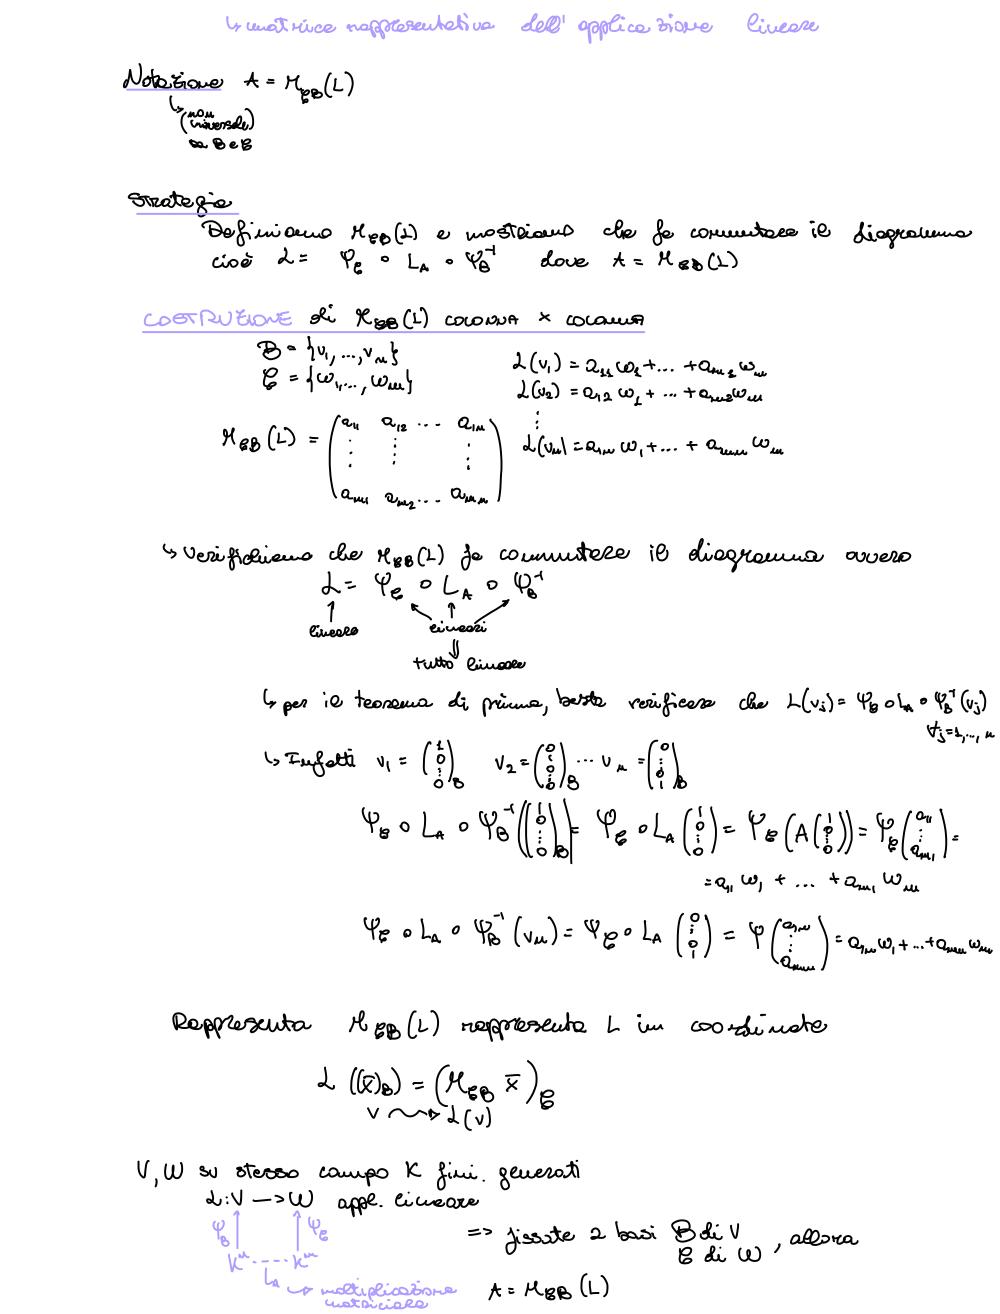 ↳ matrice rappresentativa dell'applicazione lineare
Notazione A = M_{CB}(L)
↳ (non universale)
da B e C
Strategia
Definiamo M_{CB}(L) e mostriamo che fa commutare il diagramma
cioè L = φ_C ∘ L_A ∘ φ_B^{-1} dove A = M_{CB}(L)
COSTRUZIONE di M_{CB}(L) COLONNA × COLONNA
B = {v_1, ..., v_n}
C = {w_1, ..., w_m}
L(v_1) = a_{11} w_1 + ... + a_{m1} w_m
L(v_2) = a_{12} w_1 + ... + a_{m2} w_m
⋮
L(v_n) = a_{1n} w_1 + ... + a_{mn} w_m
M_{CB}(L) = ( a_{11} a_{12} ... a_{1n}
⋮ ⋮ ⋮
a_{m1} a_{m2} ... a_{mn} )
↳ Verifichiamo che M_{CB}(L) fa commutare il diagramma ovvero
L = φ_C ∘ L_A ∘ φ_B^{-1}
↑ ↖ ↑ ↗
lineare lineari
⇓
tutto lineare
↳ per il teorema di prima, basta verificare che L(v_j) = φ_C ∘ L_A ∘ φ_B^{-1}(v_j)
∀j = 1, ..., n
↳ Infatti v_1 = (1 0 ⋮ 0)_B v_2 = (0 0 ⋮ 0)_B ... v_n = (0 ⋮ 0 1)_B
φ_C ∘ L_A ∘ φ_B^{-1}((1 0 ⋮ 0)_B) = φ_C ∘ L_A (1 0 ⋮ 0) = φ_C (A (1 0 ⋮ 0)) = φ_C (a_{11} ⋮ a_{m1}) =
= a_{11} w_1 + ... + a_{m1} w_m
φ_C ∘ L_A ∘ φ_B^{-1}(v_n) = φ_C ∘ L_A (0 ⋮ 0 1) = φ (a_{1n} ⋮ a_{mn}) = a_{1n} w_1 + ... + a_{mn} w_m
Rappresenta M_{CB}(L) rappresenta L in coordinate
L((x̄)_B) = (M_{CB} x̄)_C
v ⇝ L(v)
V, W su stesso campo K fin. generati
L: V → W appl. lineare
φ_B ↑ ↑ φ_C
K^n ---- K^m
L_A ↳ moltiplicazione
matriciale
=> fissate 2 basi B di V
C di W , allora
A = M_{CB}(L)